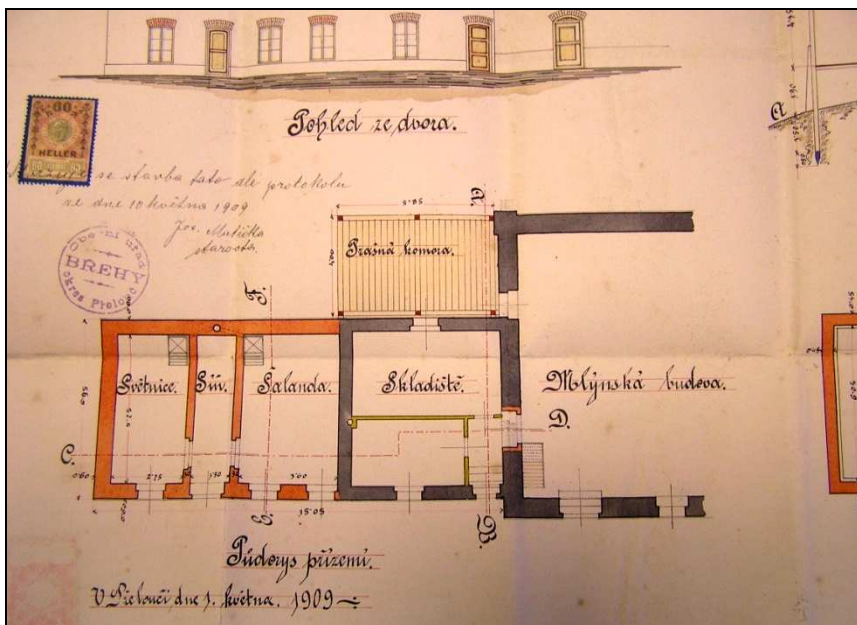 Pohled ze dvora.
60
HELLER
se stavba tato dle protokolu
ze dne 10 května 1909
Jos. Matička
starosta.
Obecní úřad
BŘEHY
okres Přelouč
A.
Prašná komora.
F.
Světnice.
Síň.
Šalanda.
Skladiště.
Mlýnská budova.
C.
D.
2.75
1.50
3.60
B.
Půdorys přízemí.
V Přelouči dne 1. května. 1909